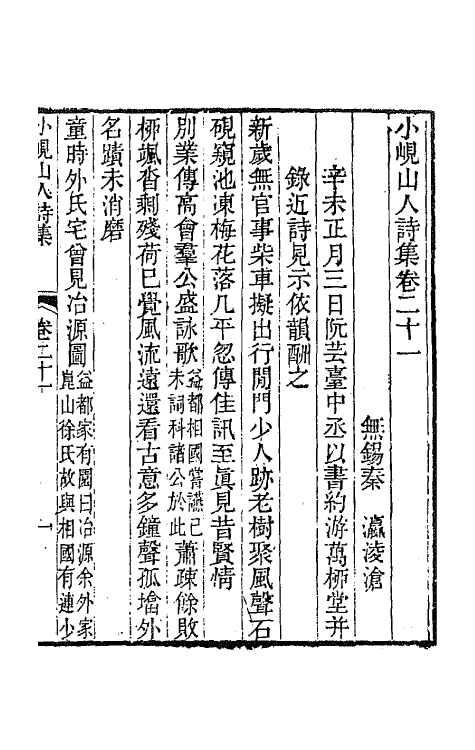 小峴山人詩集卷二十一
無錫秦　瀛淩滄
辛未正月三日阮芸臺中丞以書約游萬柳堂并
錄近詩見示依韻酬之
新歲無官事柴車擬出行閒門少人跡老樹聚風聲石
硯窺池凍梅花落几平忽傳佳訊至眞見昔賢情
別業傳高會羣公盛詠歌益都相國嘗讌己未詞科諸公於此蕭疎餘敗
柳颯沓剩殘荷已覺風流遠還看古意多鐘聲孤墖外
名蹟未消磨
童時外氏宅曾見冶源圖益都家有園曰冶源余外家崑山徐氏故與相國有連少
小峴山人詩集　卷二十一　一